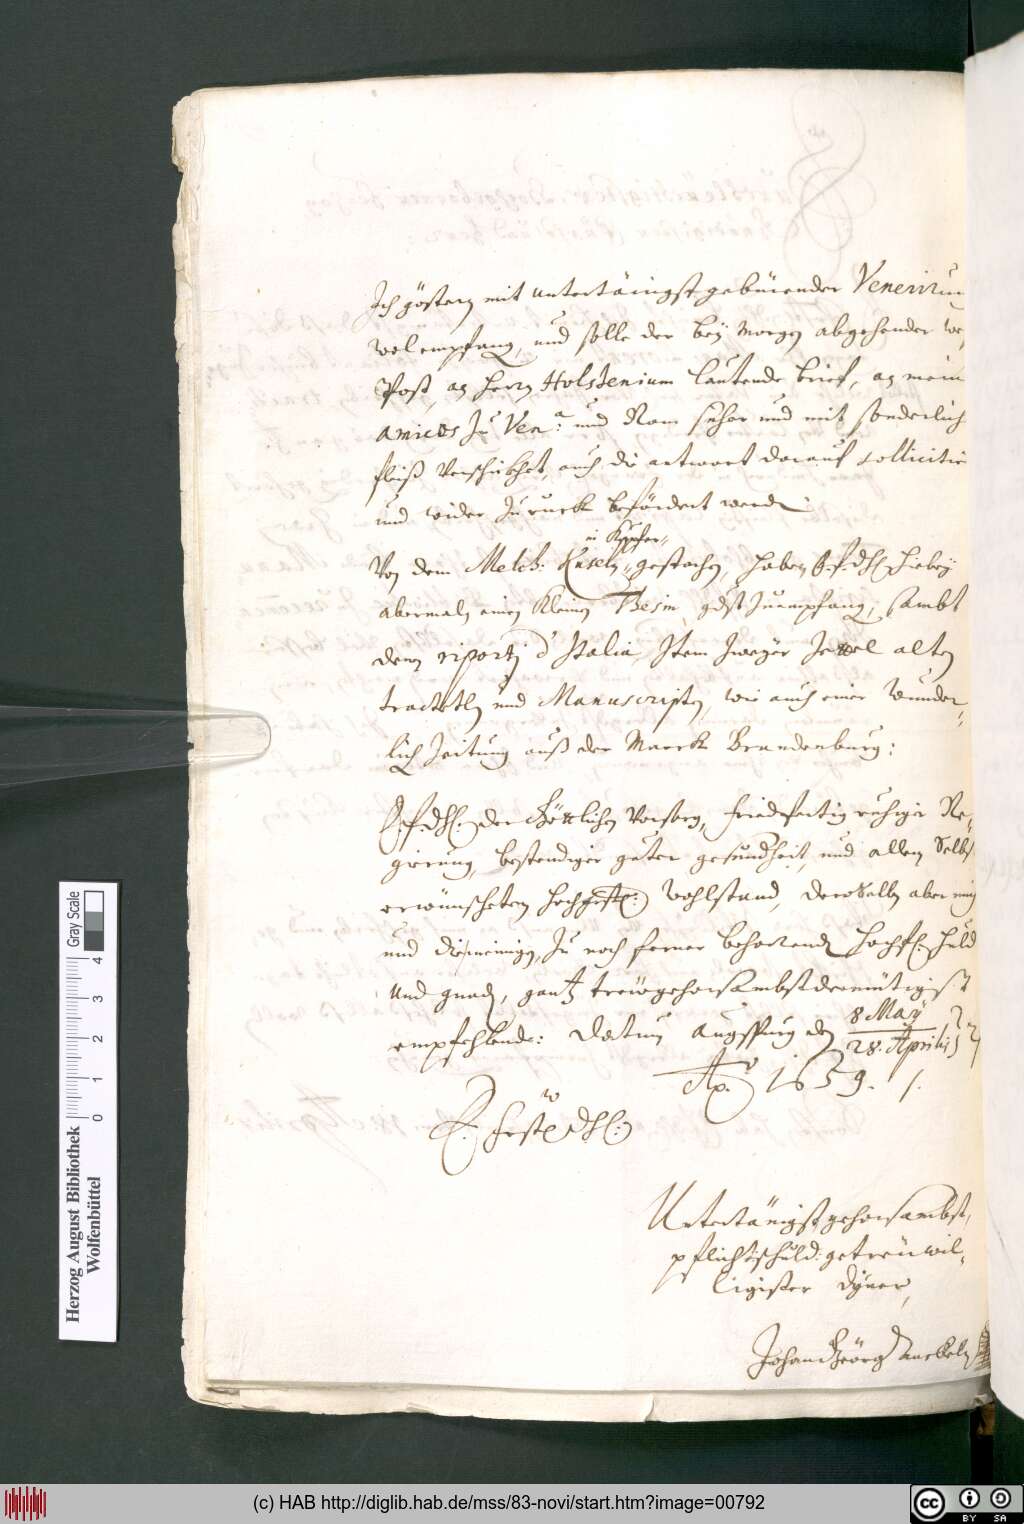 Ich gestern mit untertänigst gebürender Venerirung
wol empfang, und solle der bey morgen abgehender
Post, an Herrn Holstenium lautende brief, an mein
amicos zu Ven.a und Rom sicher und mit sonderlich
fleiß verschickhet, auch die antwort darauf sollicitir
und wider zu ruckh befördert werden
in Kupfer-
Von dem Melch: Küseln gestochen, haben E. f. Dhl. hiebey
abermaln einen kleinen Thesin, gdst zuempfang, sambt
dem riporti d'Italia, Item zweyer Zettel alten
tractetln und Manuscripten, wie auch einer wunder-
lich Zeitung auß der Marck Brandenburg:
E. f. Dhl: der Göttlichen vorsorg, friedfertig ruhiger Re-
girung, bestendiger guter gesundheit, und allem Selbst
erwünscheten hochfrstl: wohlstand, deroselben aber mich
und die meinigen, zu noch ferner beharrend hochfl: huld
und gnad, gantz treugehorsambst demütigist
empfehlende: Datum Augspurg den 8 May
28. Aprilis
Ao. 1659.
E. hfrstl Dhl:
Untertänigst gehorsambst,
pflichtschuld: getreüwil-
ligister dyner,
Johan Geörg Anckeln
Herzog August Bibliothek
Wolfenbüttel
Gray Scale
0 1 2 3 4
(c) HAB http://diglib.hab.de/mss/83-novi/start.htm?image=00792
cc BY SA